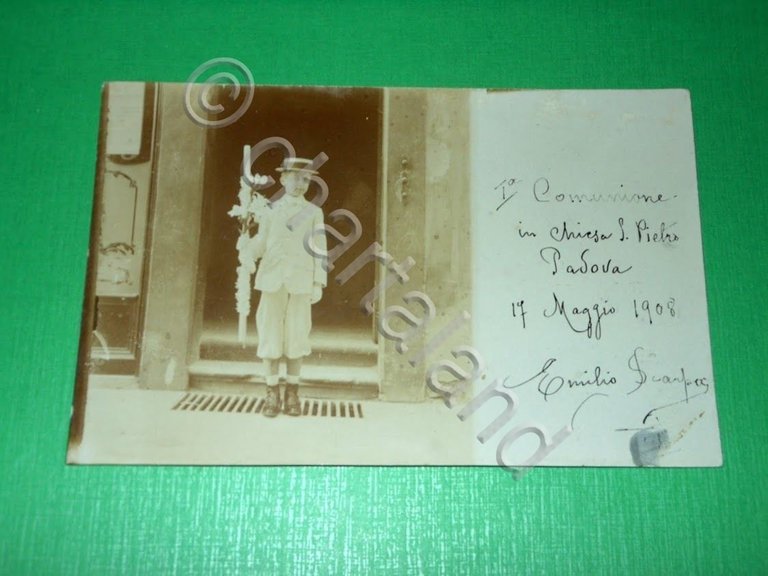 © chartaland
Iª Comunione
in chiesa S. Pietro
Padova
17 Maggio 1908
Emilio Scarpa